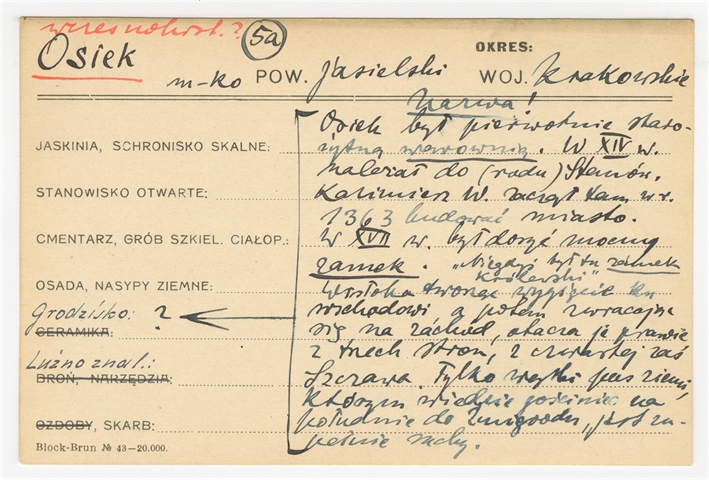 wczesnohist.?
Osiek
5a
OKRES:
m-ko POW. Jasielski WOJ. Krakowskie
Nazwa!
Osiek był pierwotnie staro-
JASKINIA, SCHRONISKO SKALNE: żytną warownią. W XIV w.
należał do (rodu) Stanów.
STANOWISKO OTWARTE: Kazimierz W. zaczął tam w r.
1363 budować miasto.
CMENTARZ, GRÓB SZKIEL. CIAŁOP.: W XVII w. był dosyć mocny
zamek. „Niegdyś był tu zamek
Królewski"
OSADA, NASYPY ZIEMNE: Wisłoka tworząc wygięcie ku
Grodzisko: ? wschodowi a potem zwracając
CERAMIKA: się na zachód, otacza je prawie
Luźno znal.: z trzech stron, z czwartej zaś
BROŃ, NARZĘDZIA: Szczawa. Tylko wąski pas ziemi,
którym wiedzie gościniec na
OZDOBY, SKARB: południe do Żmigrodu, jest zu-
pełnie suchy.
Block-Brun № 43-20.000.